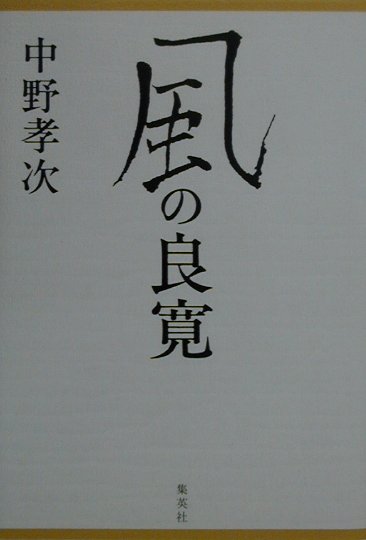 風の良寛
中野孝次
集英社